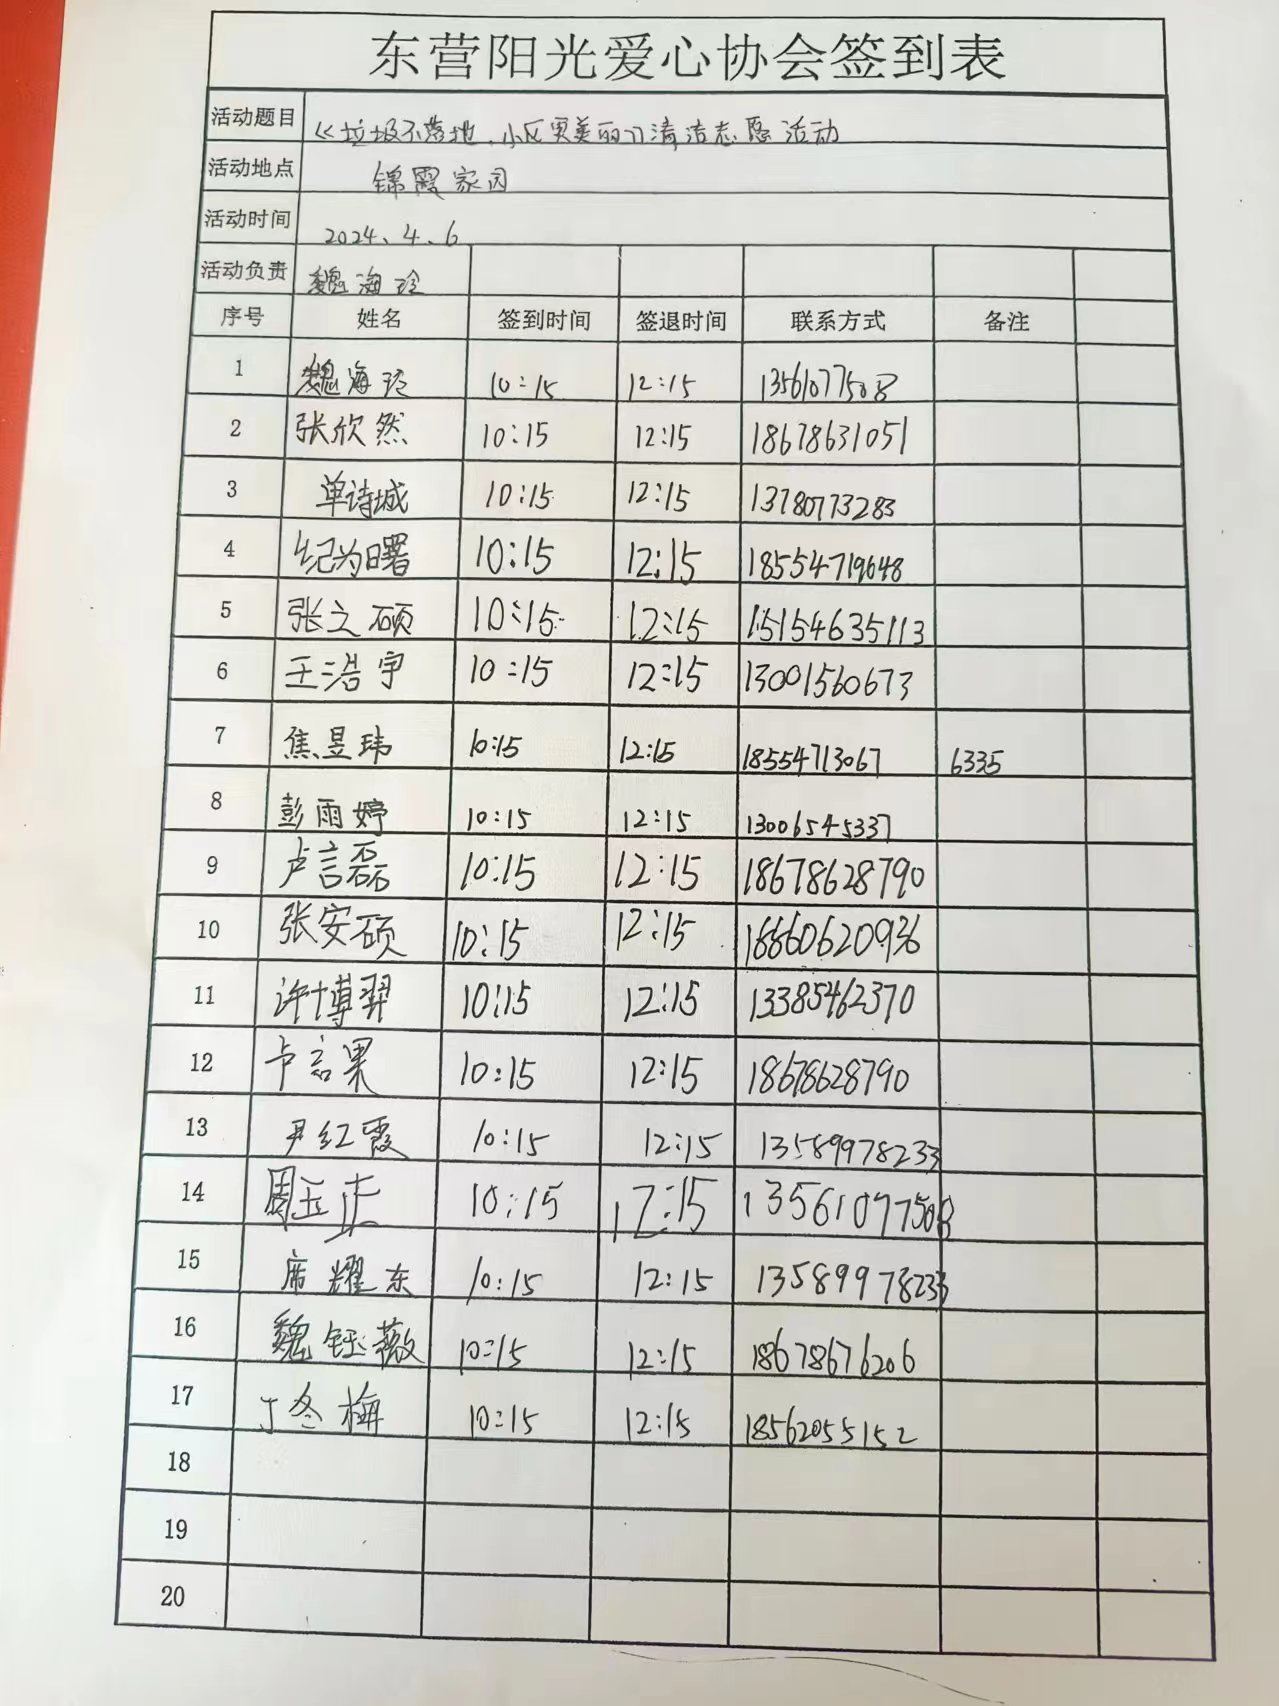 东营阳光爱心协会签到表
活动题目 《垃圾不落地、小区更美丽》清洁志愿活动
活动地点 锦霞家园
活动时间 2024、4、6
活动负责 魏海玲
序号 姓名 签到时间 签退时间 联系方式 备注
1 魏海玲 10:15 12:15 13561077508
2 张欣然 10:15 12:15 18678631051
3 单诗城 10:15 12:15 13780773283
4 纪为曙 10:15 12:15 18554719648
5 张立硕 10:15 12:15 15154635113
6 王浩宇 10:15 12:15 13001560673
7 焦昱玮 10:15 12:15 18554713067 6335
8 彭雨婷 10:15 12:15 13006545337
9 卢言磊 10:15 12:15 18678628790
10 张安硕 10:15 12:15 18660620936
11 许博羿 10:15 12:15 13385462370
12 卢言果 10:15 12:15 18678628790
13 尹红霞 10:15 12:15 13589978233
14 周玉正 10:15 12:15 13561077508
15 席耀东 10:15 12:15 13589978233
16 魏钰薇 10:15 12:15 18678676206
17 丁冬梅 10:15 12:15 18562055152
18
19
20